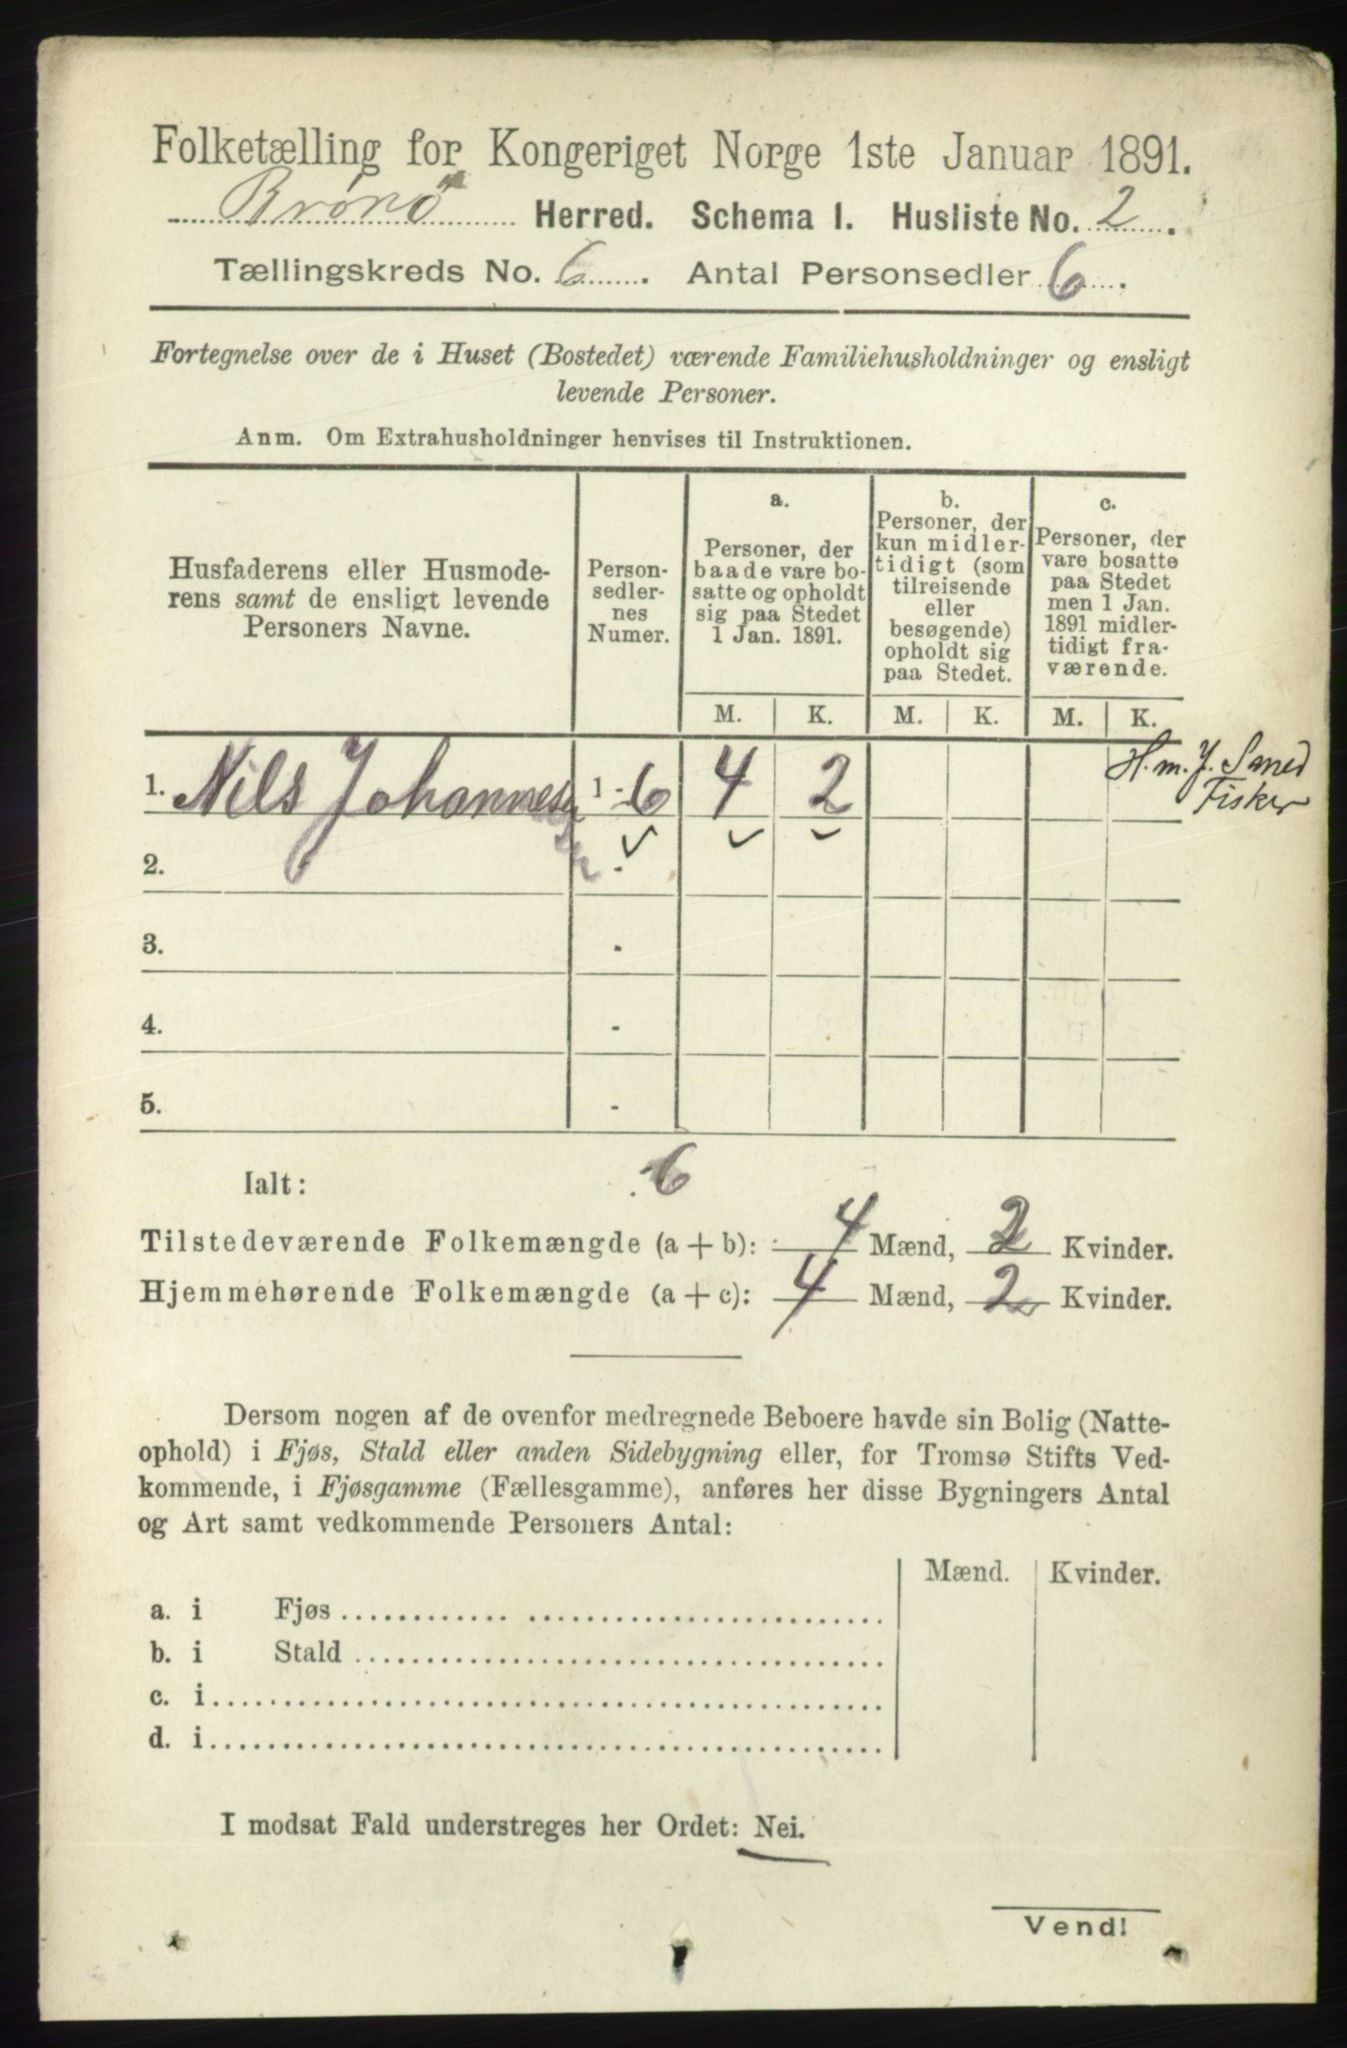 Folketælling for Kongeriget Norge 1ste Januar 1891.
Brønø Herred. Schema 1. Husliste No. 2.
Tællingskreds No. 6. Antal Personsedler 6.
Fortegnelse over de i Huset (Bostedet) værende Familiehusholdninger og ensligt
levende Personer.
Anm. Om Extrahusholdninger henvises til Instruktionen.
Husfaderens eller Husmode-
rens samt de ensligt levende
Personers Navne.
Person-
sedler-
nes
Numer.
a.
Personer, der
baade vare bo-
satte og opholdt
sig paa Stedet
1 Jan. 1891.
b.
Personer, der
kun midler-
tidigt (som
tilreisende
eller
besøgende)
opholdt sig
paa Stedet.
c.
Personer, der
vare bosatte
paa Stedet
men 1 Jan.
1891 midler-
tidigt fra-
værende.
M. K. M. K. M. K.
1. Nils Johannesen 1-6 4 2 H. m. J. Smed
Fisker
2. -
3. -
4. -
5. -
Ialt: 6
Tilstedeværende Folkemængde (a + b): 4 Mænd, 2 Kvinder.
Hjemmehørende Folkemængde (a + c): 4 Mænd, 2 Kvinder.
Dersom nogen af de ovenfor medregnede Beboere havde sin Bolig (Natte-
ophold) i Fjøs, Stald eller anden Sidebygning eller, for Tromsø Stifts Ved-
kommende, i Fjøsgamme (Fællesgamme), anføres her disse Bygningers Antal
og Art samt vedkommende Personers Antal:
Mænd. Kvinder.
a. i Fjøs
b. i Stald
c. i
d. i
I modsat Fald understreges her Ordet: Nei.
Vend!